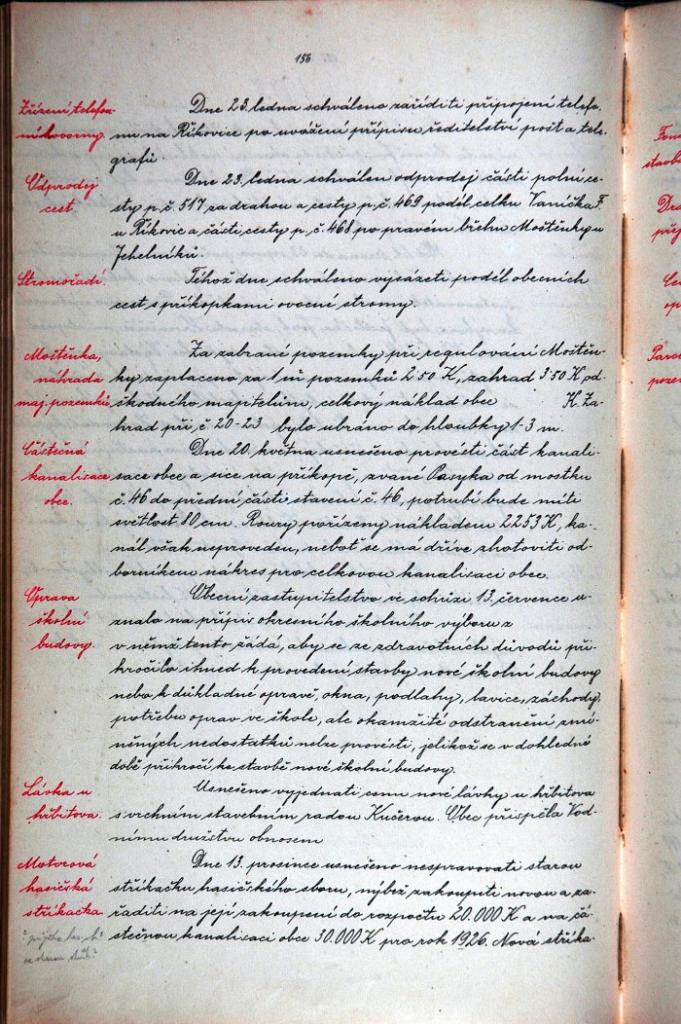 156
Zřízení telefo-
ního vorny.
Dne 23. ledna schváleno zaříditi připojení telefo-
nu na Říkovice po uvážení přípisu ředitelství pošt a tele-
grafů.
Odprodej
cest.
Dne 23. ledna schválen odprodej části polní ce-
sty p. č. 517 za drahou a cesty p. č. 469 podél celku Vaníčka F.
u Říkovic a části cesty p. č. 468 po pravém břehu Moštěnky u
Jehelníků.
Stromořadí.
Téhož dne schváleno vysázeti podél obecních
cest s příkopkami ovocné stromy.
Moštěnka,
náhrada
maj. pozemků
Za zabrané pozemky při regulování Moštěn-
ky zaplaceno za 1 m² pozemků 2·50 K, zahrad 3·50 K od-
škodného majitelům, celkový náklad obce K. Za-
hrad při č. 20-23 bylo ubráno do hloubky 1-3 m.
Částečná
kanalisace
obce.
Dne 20. května usneseno provésti část kanali-
sace obce a sice na příkopě, zvané Pasyka od mostku
č. 46 do přední části stavení č. 46, potrubí bude míti
světlost 80 cm. Roury pořízeny nákladem 2253 K, ka-
nál však neproveden, neboť se má dříve zhotoviti od-
borníkem nákres pro celkovou kanalisaci obce.
Oprava
školní
budovy.
Obecní zastupitelstvo ve schůzi 13. července u-
znalo na přípis okresního školního výboru z
v němž tento žádá, aby se ze zdravotních důvodů při-
kročilo ihned k provedení stavby nové školní budovy
nebo k důkladné opravě, okna, podlahy, lavice, záchody,
potřebu oprav ve škole, ale okamžité odstranění zmí-
něných nedostatků nelze provésti, jelikož se v dohledné
době přikročí ke stavbě nové školní budovy.
Lávka u
hřbitova.
Usneseno vyjednati cenu nové lávky u hřbitova
s vrchním stavebním radou Kučerou. Obec přispěla Vod-
nímu družstvu obnosem
Motorová
hasičská
stříkačka
Dne 13. prosince usneseno nespravovati starou
stříkačku hasičského sboru, nýbrž zakoupiti novou a za-
řaditi na její zakoupení do rozpočtu 20.000 K a na čá-
stečnou kanalisaci obce 30.000 K pro rok 1926. Nová stříka-